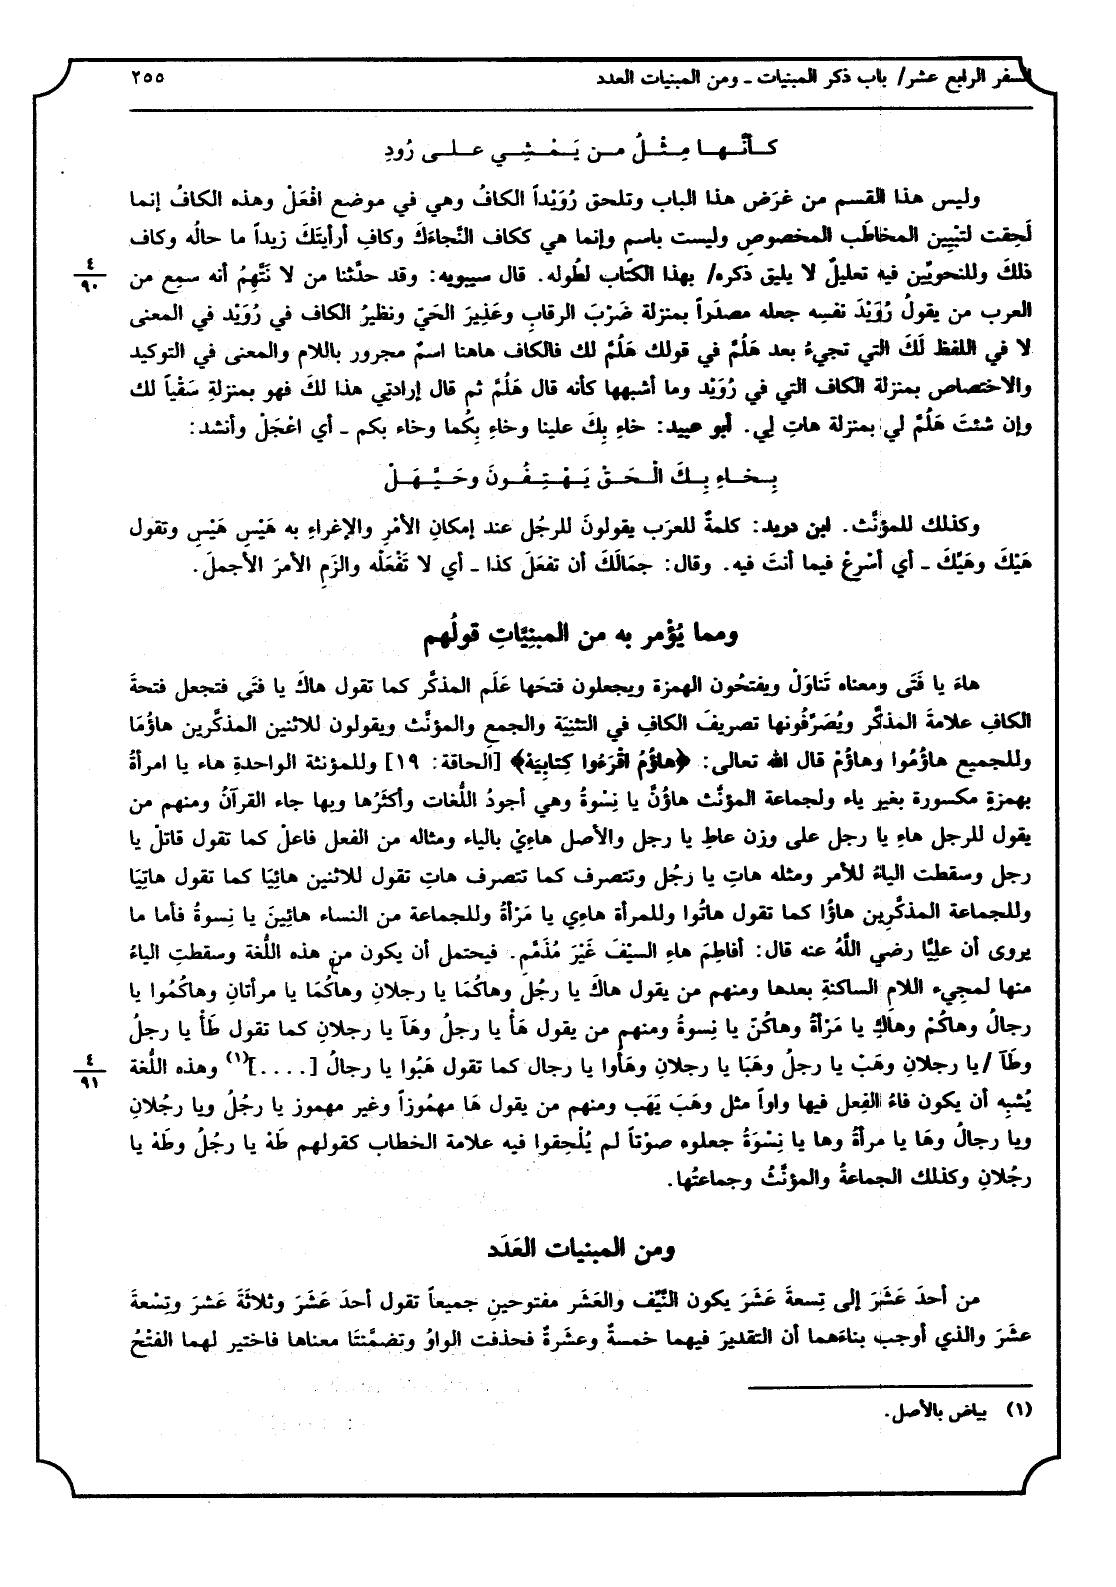 السفر الرابع عشر/ باب ذكر المبنيات ـ ومن المبنيات العدد ٢٥٥
كـأنَّـهـا مِـثْـلُ مـن يَـمْـشِـي عـلـى رُودِ
وليس هذا القسم من غرَض هذا الباب وتلحق رُوَيْداً الكافُ وهي في موضع افْعَلْ وهذه الكافُ إنما
لَحِقت لتبْيِين المخاطَب المخصوصِ وليست باسم وإنما هي ككاف النَّجاءَكَ وكافِ أرأيتَكَ زيداً ما حالُه وكاف
ذلكَ وللنحويِّين فيه تعليلٌ لا يليق ذكره/ بهذا الكتاب لطُوله. قال سيبويه: وقد حدَّثنا من لا نَتَّهِمُ أنه سمِع من
٤
٩٠
العرب من يقولُ رُوَيْدَ نفسِه جعله مصدَراً بمنزلة ضَرْبَ الرقابِ وعَذِيرَ الحَيّ ونظيرُ الكاف في رُوَيْد في المعنى
لا في اللفظ لَكَ التي تجيءُ بعد هَلُمَّ في قولك هَلُمَّ لك فالكاف هاهنا اسمٌ مجرور باللام والمعنى في التوكيد
والاختصاص بمنزلة الكاف التي في رُوَيْد وما أشبهها كأنه قال هَلُمَّ ثم قال إرادتِي هذا لكَ فهو بمنزلةِ سَقْياً لك
وإن شئتَ هَلُمَّ لي بمنزلة هاتِ لِي. أبو عبيد: خاءِ بِكَ علينا وخاءِ بِكُما وخاء بكم ـ أي اعْجَلْ وأنشد:
بِـخـاءِ بِـكَ الْـحَـقْ يَـهْـتِـفُـونَ وحَـيَّـهَـلْ
وكذلك للمؤنَّث. ابن دريد: كلمةٌ للعرَب يقولونَ للرجُل عند إمكانِ الأمْرِ والإغراءِ به هَيْسِ هَيْسِ وتقول
هَيْكَ وهَيَّكَ ـ أي أسْرِعْ فيما أنتَ فيه. وقال: جمَالَكَ أن تفعَلَ كذا ـ أي لا تَفْعَلْه والزَمِ الأمرَ الأجملَ.
ومما يُؤْمر به من المبنِيَّاتِ قولُهم
هاءَ يا فَتَى ومعناه تَناوَلْ ويفتحُون الهمزة ويجعلون فتحَها عَلَم المذكَّر كما تقول هاكَ يا فتَى فتجعل فتحةَ
الكافِ علامةَ المذكَّر ويُصَرِّفُونها تصريفَ الكافِ في التثنِيَة والجمعِ والمؤنَّث ويقولون للاثنين المذكَّرين هاؤُمَا
وللجميع هاؤُمُوا وهاؤُمْ قال الله تعالى: ﴿هاؤُمُ اقْرَءُوا كِتابِيَهْ﴾ [الحاقة: ١٩] وللمؤنثة الواحدةِ هاء يا امرأةُ
بهمزةٍ مكسورة بغير ياء ولجماعة المؤنَّث هاؤُنَّ يا نِسْوةُ وهي أجودُ اللُّغات وأكثَرُها وبها جاء القرآنُ ومنهم من
يقول للرجل هاءِ يا رجل على وزن عاطِ يا رجل والأصل هاءِيْ بالياء ومثاله من الفعل فاعلْ كما تقول قاتلْ يا
رجل وسقطت الياءُ للأمر ومثله هاتِ يا رَجُل وتتصرف كما تتصرف هاتِ تقول للاثنين هائِيَا كما تقول هاتِيَا
وللجماعة المذكَّرين هاؤُا كما تقول هاتُوا وللمرأة هاءِي يا مَرْأةُ وللجماعة من النساء هائِينَ يا نِسوةُ فأما ما
يروى أن عليًّا رضي اللَّهُ عنه قال: أفاطِمَ هاءِ السيْفَ غَيْرَ مُذَمَّمِ. فيحتمل أن يكون من هذه اللُّغة وسقطتِ الياءُ
منها لمجِيء اللامِ الساكنةِ بعدها ومنهم من يقول هاكَ يا رجُلُ وهاكُمَا يا رجلانِ وهاكُمَا يا مرأتانِ وهاكُمُوا يا
رجالُ وهاكُمْ وهاكِ يا مَرْأةُ وهاكُنّ يا نِسوةُ ومنهم من يقول هَأْ يا رجلُ وهَآ يا رجلانِ كما تقول طَأْ يا رجلُ
وطَآ /يا رجلانِ وهَبْ يا رجلُ وهَبَا يا رجلانِ وهَأُوا يا رجال كما تقول هَبُوا يا رجالُ [. . . .](١) وهذه اللُّغة
٤
٩١
يُشبِه أن يكون فاءُ الفِعل فيها واواً مثل وهَبَ يَهَب ومنهم من يقول هَا مهمُوزاً وغير مهموز يا رجُلُ ويا رجُلانِ
ويا رجالُ وهَا يا مرأةُ وها يا نِسْوَةُ جعلوه صوْتاً لم يُلْحِقوا فيه علامة الخطاب كقولهم طَهْ يا رجُلُ وطَهْ يا
رجُلانِ وكذلك الجماعةُ والمؤنَّثُ وجماعتُها.
ومن المبنيات العَدَد
من أحدَ عَشَرَ إلى تِسعةَ عَشَرَ يكون النَّيِّف والعَشَر مفتوحينِ جميعاً تقول أحدَ عَشَرَ وثلاثةَ عَشرَ وتِسْعةَ
عشَرَ والذي أوجب بناءَهما أن التقديرَ فيهما خمسةٌ وعشَرةٌ فحذفت الواوُ وتضمَّنتَا معناها فاختير لهما الفتْحُ
(١) بياض بالأصل.